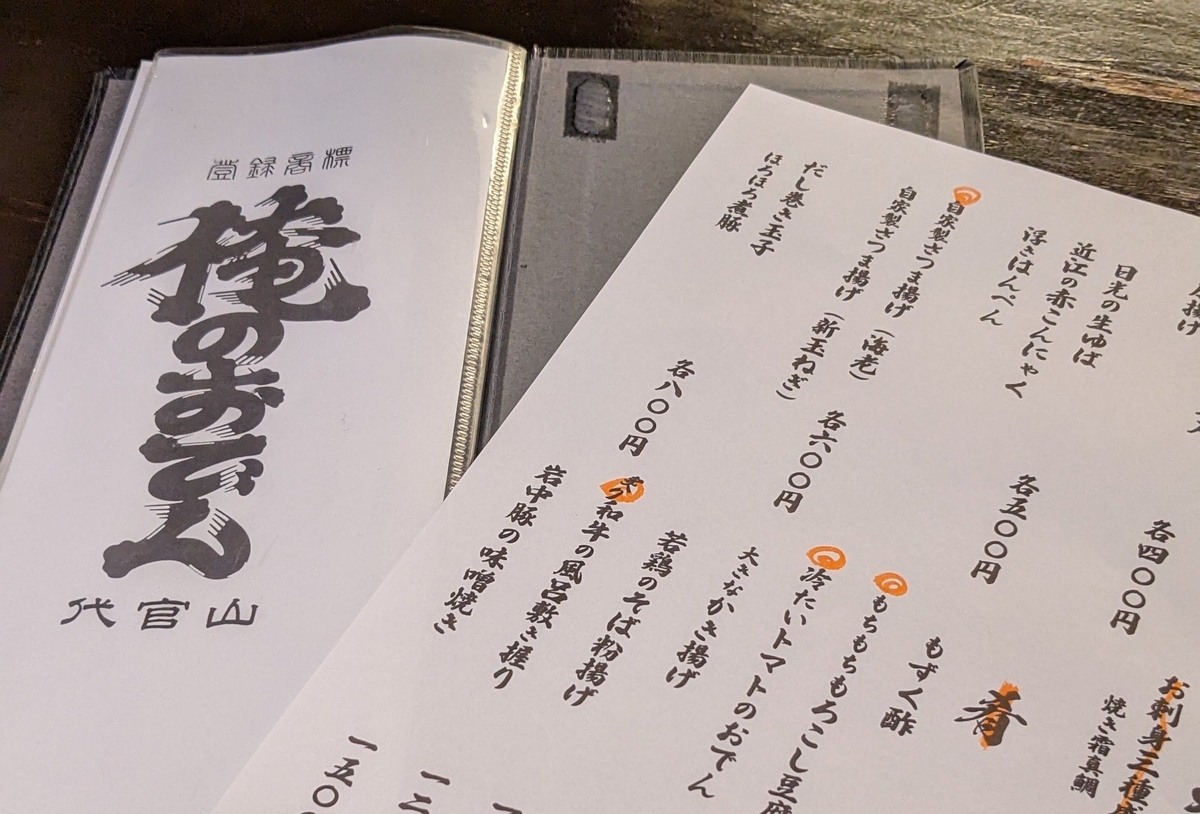 登録商標
俺のおでん
代官山
揚げ
各四〇〇円
日光の生ゆば
近江の赤こんにゃく
浮きはんぺん
各五〇〇円
自家製さつま揚げ(海老)
自家製さつま揚げ(新玉ねぎ)
各六〇〇円
だし巻き玉子
ほろほろ煮豚
各八〇〇円
お刺身三種
焼き霜真鯛
肴
もずく酢
もちもちもろこし豆腐
冷たいトマトのおでん
大きなかき揚げ
若鶏のそば粉揚げ
和牛の風呂敷き握り
岩中豚の味噌焼き
一二
一五〇